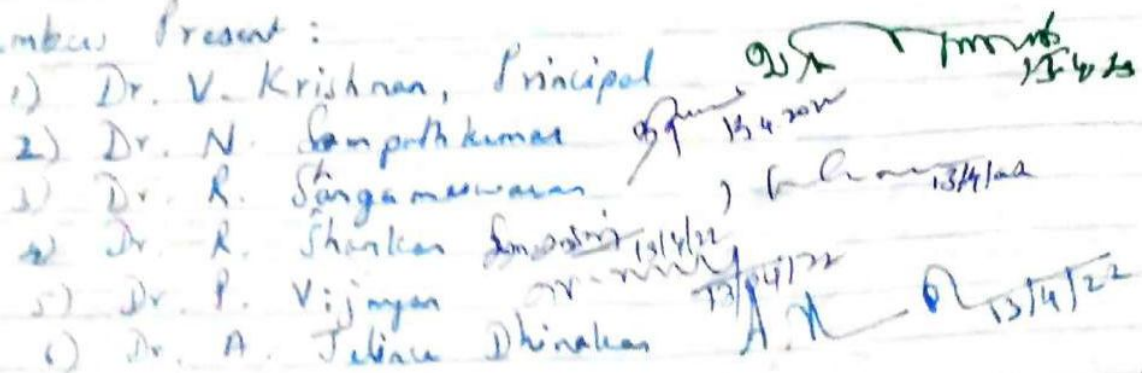 mbers Present :
1) Dr. V. Krishnan, Principal
2) Dr. N. Sampathkumar 13.4.2022
3) Dr. R. Sangameswaran 13/4/22
4) Dr. R. Shankar 13/4/22
5) Dr. P. Vijayan 13/04/22
6) Dr. A. Dhinakan 13/4/22